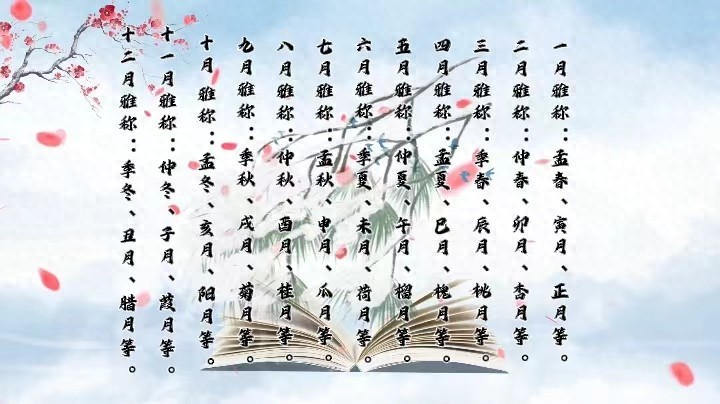 一月雅称：孟春、寅月、正月等。
二月雅称：仲春、卯月、杏月等。
三月雅称：季春、辰月、桃月等。
四月雅称：孟夏、巳月、槐月等。
五月雅称：仲夏、午月、榴月等。
六月雅称：季夏、未月、荷月等。
七月雅称：孟秋、申月、瓜月等。
八月雅称：仲秋、酉月、桂月等。
九月雅称：季秋、戌月、菊月等。
十月雅称：孟冬、亥月、阳月等。
十一月雅称：仲冬、子月、葭月等。
十二月雅称：季冬、丑月、腊月等。